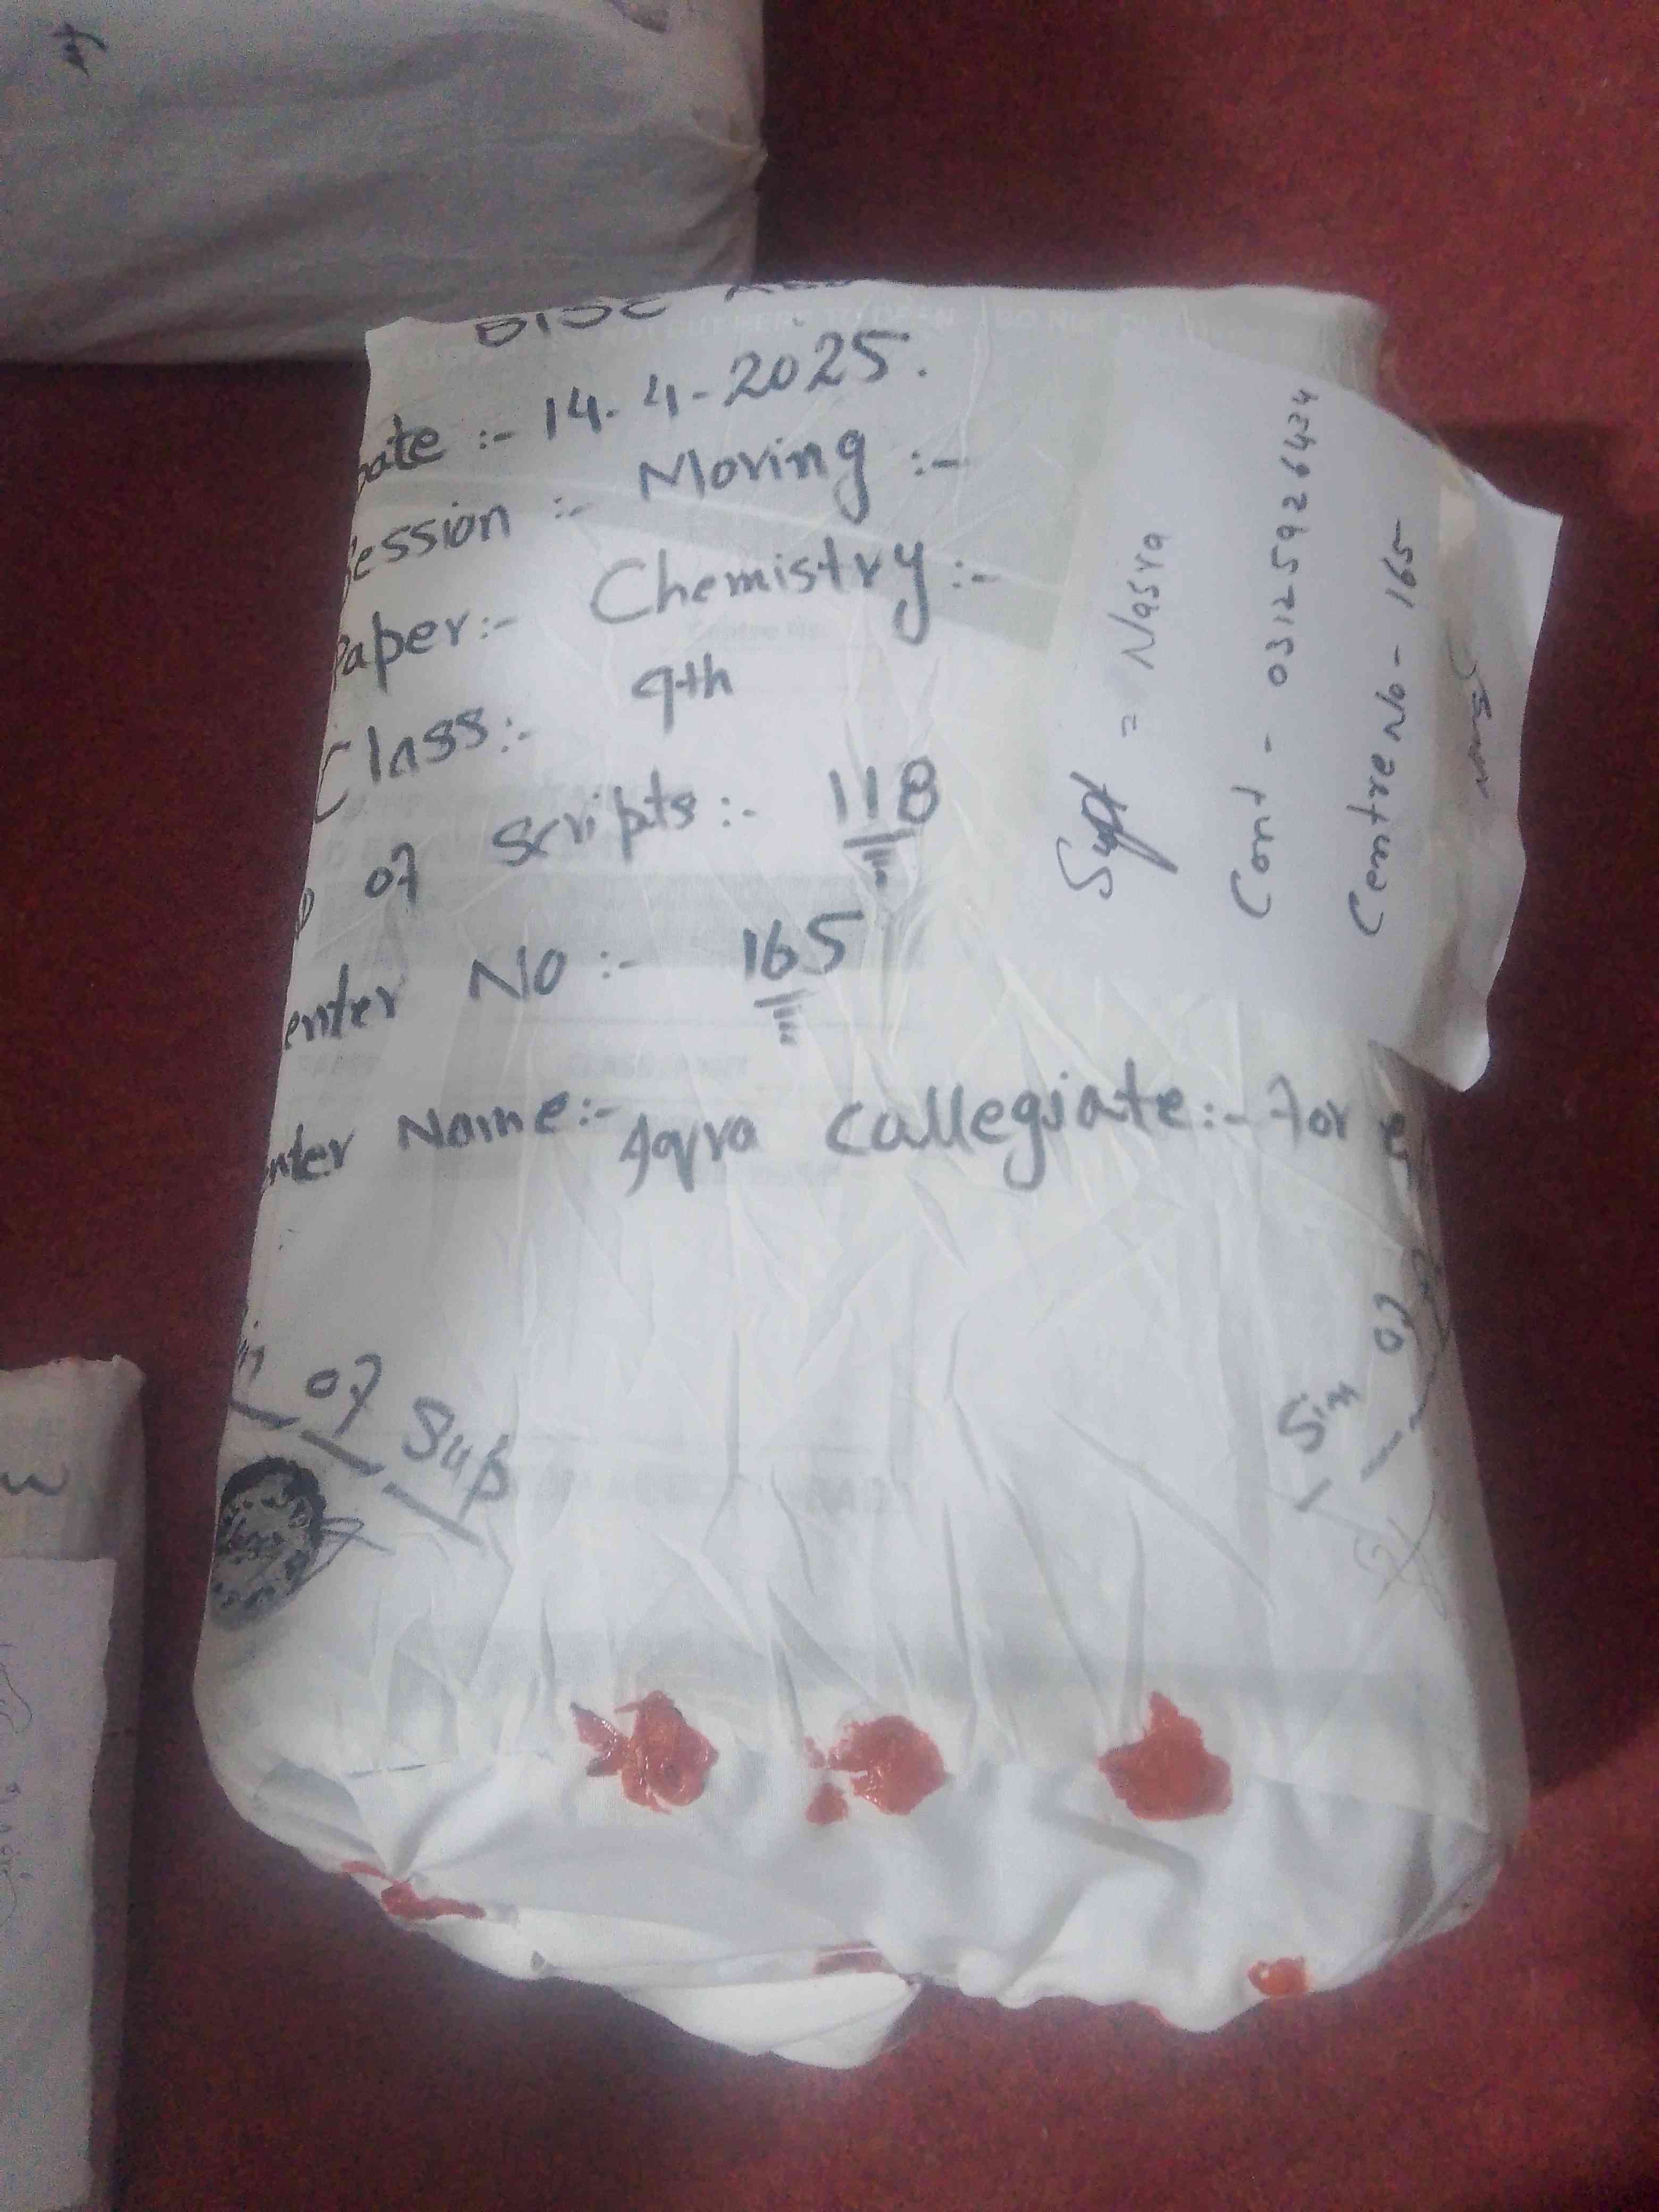 BISE
Date :- 14-4-2025.
Session :- Moring :-
Paper:- Chemistry :-
Class:- 9th
of Scripts:- 118
enter No :- 165
nter Name:- Iqra Collegiate:- For
of Sup
Sin of
Supt = Nasra
Cont - 03125926434
Centre No - 165